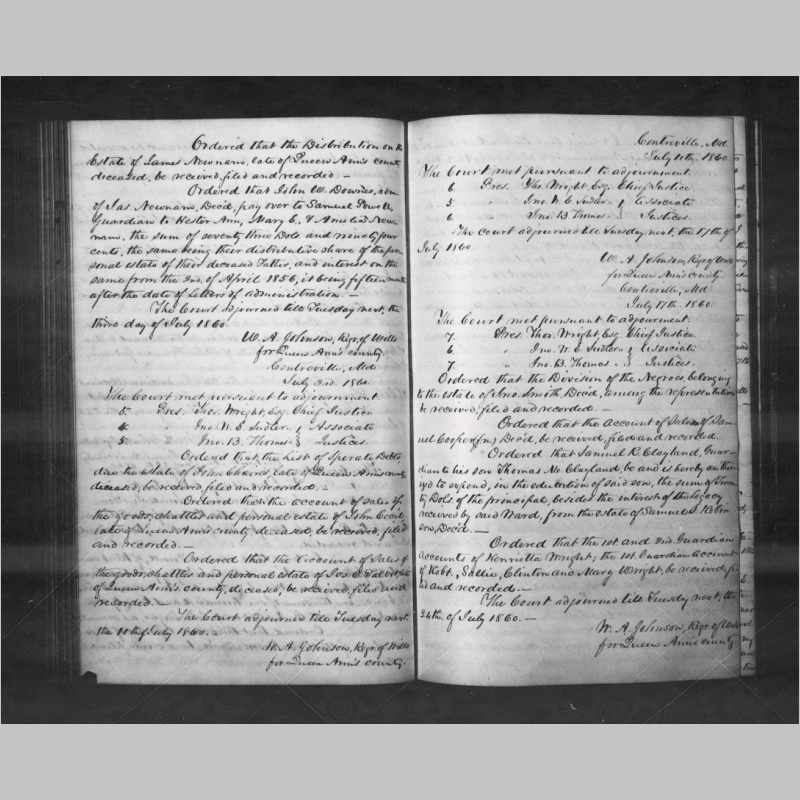 Ordered that the Distribution on the
Estate of James Newnam, late of Queen Ann's county
deceased, be received, filed and recorded. -
Ordered that John W. Downes, adm.
of Jas Newnam, Decd, pay over to Samuel
Guardian to Hester Ann, Mary E. & Amelia New-
nam, the sum of seventy three Dols and ninety four
cents, the same being their distributive share of the per-
sonal estate of their deceased Father, and interest on the
same from the of April 1856, it being fifteen
after the date of Letters of administration. -
The Court adjourned till Tuesday next, the
third day of July 1860.
W. A. Johnson, Regr. of Wills
for Queen Ann's county.
Centreville, Md
July 3rd. 1860.
The Court met pursuant to adjournment
5. Pres. Thos. Wright, Esq. Chief Justice
4. " Jno. W. E. Sudler } Associate
5. " Jno. B. Thomas } Justices.
Ordered that the List of Sperate Debts
due the Estate of John late of Queen Ann's county
deceased, be received, filed and recorded. -
Ordered that the account of sales of
the goods, chattles and personal estate of John Cecil
late of Queen Ann's county, deceased, be received, filed
and recorded. -
Ordered that the account of Sales of
the goods, chattles and personal estate of Jos. E. late
of Queen Ann's county, deceased, be received, filed and
recorded. -
The Court adjourned till Tuesday next.
the 10th of July 1860. -
W. A. Johnson, Regr. of Wills
for Queen Ann's county.
Centreville, Md.
July 10th. 1860.
The Court met pursuant to adjournment.
6. Pres. Tho. Wright, Esq. Chief Justice
5 " Jno. W. E. Sudler } Associate
6 " Jno. B. Thomas } Justices.
The Court adjourned till Tuesday next, the 17th of
July 1860
W. A. Johnson, Regr. of Wills
for Queen Ann's county
Centreville, Md
July 17th. 1860.
The Court met pursuant to adjournment.
7. Pres. Thos. Wright, Esq Chief Justice
6. " Jno. W. E. Sudler } Associate
7. " Jno. B. Thomas } Justices.
Ordered that the Division of the Negroes, belonging
to the estate of Jno. Smith, Decd, among the representatives
be received, filed and recorded. -
Ordered that the account of Sales of Sam-
uel Cooper Decd, be received, filed and recorded.
Ordered that Samuel R. Clayland, Guar-
dian to his son Thomas Mc Clayland, be and is hereby author-
ized to expend, in the education of said son, the sum of Twen-
ty Dols. of the principal, besides the interest of the legacy
received by said Ward, from the estate of Samuel S. Robin
son, Decd. -
Ordered that the 1st. and 2nd. Guardian
accounts of Henrietta Wright, the 1st. Guardian account
of Robt., Sallie, Clinton and Mary Wright, be received, fi-
led and recorded. -
The Court adjourned till Tuesday next, the
24th. of July 1860. -
W. A. Johnson, Regr. of Wills
for Queen Ann's county